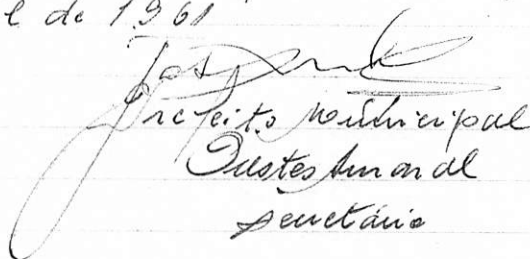 l de 1961
Prefeito Municipal
Amaral
secretário